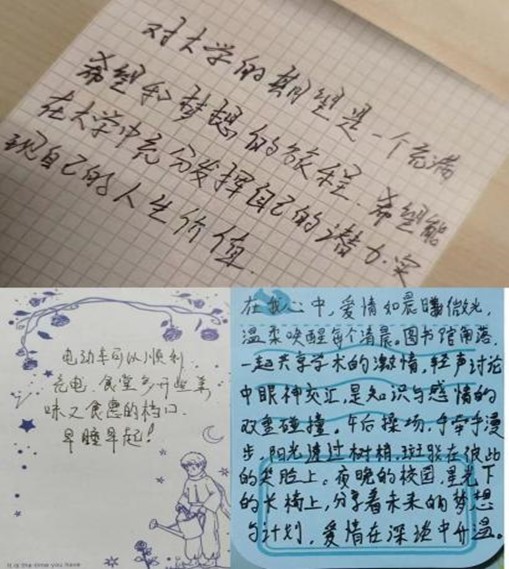 对大学的期望是一个充满
希望和梦想的旅程.希望能
在大学中充分发挥自己的潜力.实
现自己的人生价值.
电动车可以顺利
充电.食堂多开些美
味又食惠的档口.
早睡早起!
N is the time you have
在我心中,爱情如晨曦微光,
温柔唤醒每个清晨。图书馆角落,
一起共享学术的激情,轻声讨论
中眼神交汇,是知识与感情的
双重碰撞。午后操场,手牵手漫
步,阳光透过树梢,斑驳在彼此
的笑脸上。夜晚的校园,星光下
的长椅上,分享着未来的梦想
与计划,爱情在深谈中升温。